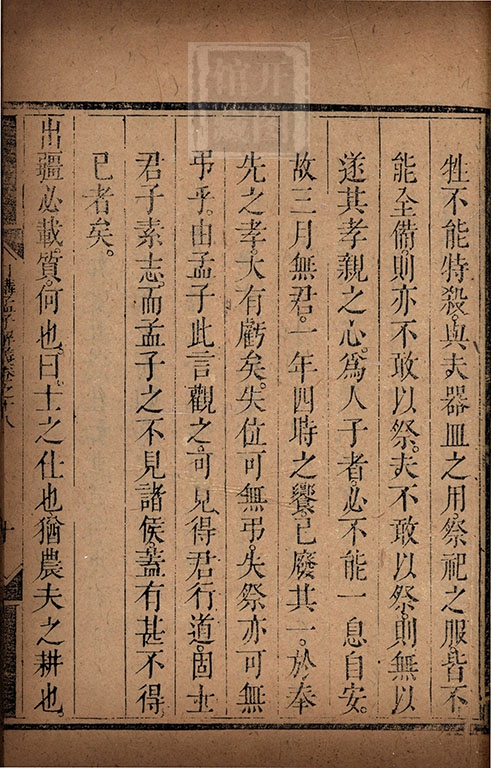 牲不能特殺。與夫器皿之用。祭祀之服。皆不
能全備。則亦不敢以祭。夫不敢以祭。則無以
遂其孝親之心。爲人子者。必不能一息自安。
故三月無君。一年四時之饗。已廢其一。於奉
先之孝。大有虧矣。失位可無弔。失祭亦可無
弔乎。由孟子此言觀之。可見得君行道。固士
君子素志。而孟子之不見諸侯。蓋有甚不得
已者矣。
出疆必載質。何也。曰。士之仕也。猶農夫之耕也。